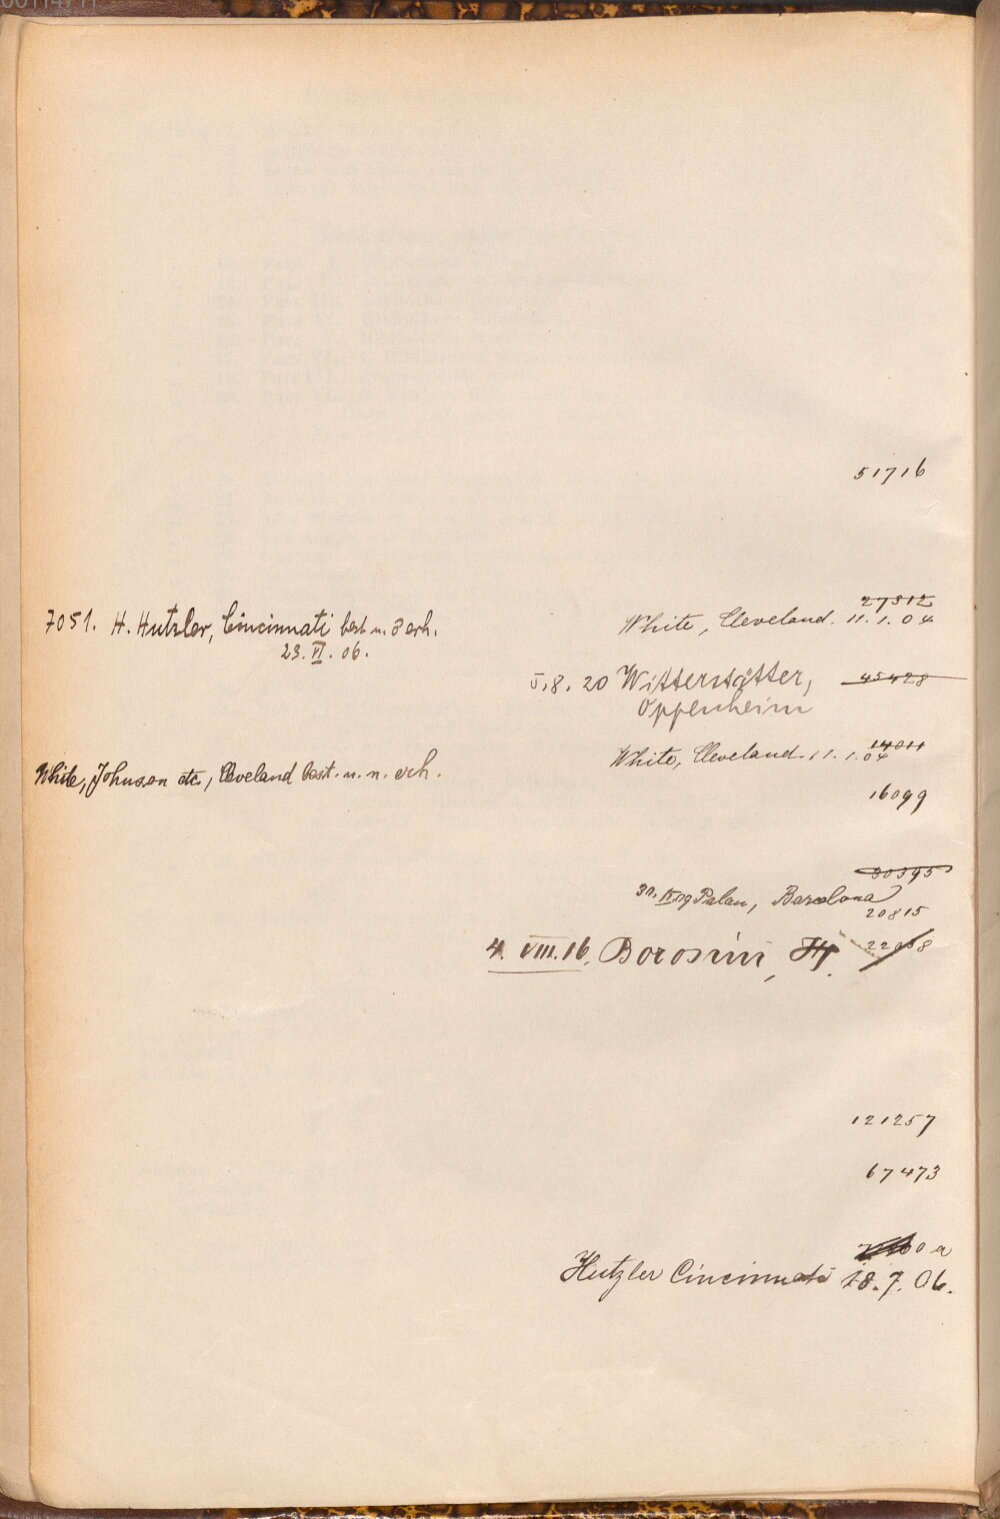 51716
27512
7051. H. Hutzler, Cincinnati best. u. erh.
White, Cleveland. 11.1.04
23. VI. 06.
5.8.20 Witterstätter, 45428
Oppenheim
14011
White, Cleveland. 11.1.04
White, Johnson etc., Cleveland best. u. n. erh.
16099
30395
IX 09 Palau, Barcelona
20815
4. VIII. 16. Borosini,
121257
67473
0 a
Hutzler Cincinnati 18.7.06.